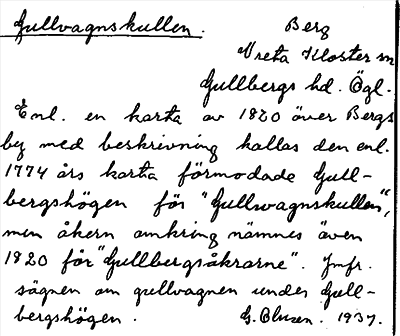 Gullvagnskullen. Berg
Vreta Kloster sn
Gullbergs hd. Ögl.
Enl. en karta av 1820 över Bergs
by med beskrivning kallas den enl.
1774 års karta förmodade Gull-
bergshögen för "Gullwagnskullen",
men åkern omkring nämnes även
1820 för "Gullbergsåkrarne". Jmfr.
sägnen om gullvagnen under Gull-
bergshögen. G. Olsson. 1937.